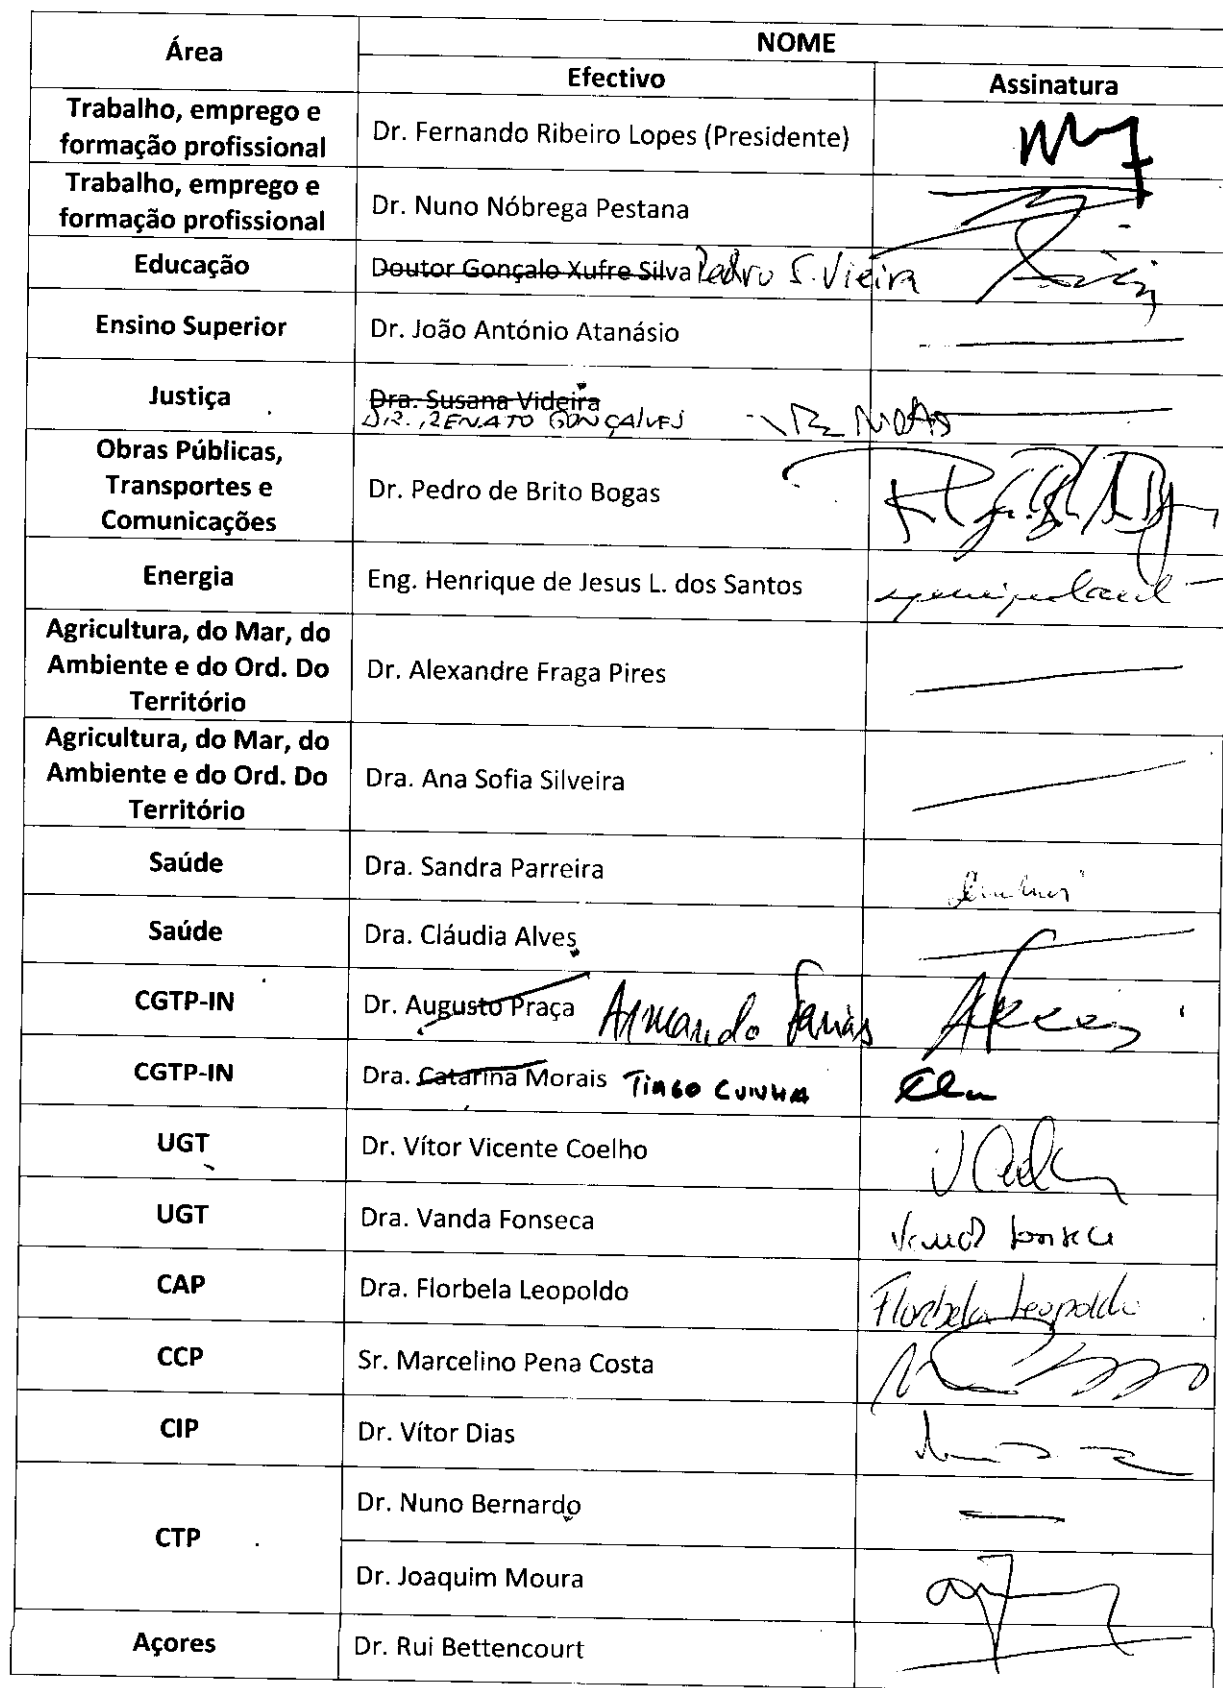 Área
NOME
Efectivo
Assinatura
Trabalho, emprego e
formação profissional
Dr. Fernando Ribeiro Lopes (Presidente)
Trabalho, emprego e
formação profissional
Dr. Nuno Nóbrega Pestana
Educação
Doutor Gonçalo Xufre Silva Pedro S. Vieira
Ensino Superior
Dr. João António Atanásio
Justiça
Dra. Susana Videira
DR. RENATO GONÇALVES
Obras Públicas,
Transportes e
Comunicações
Dr. Pedro de Brito Bogas
Energia
Eng. Henrique de Jesus L. dos Santos
Agricultura, do Mar, do
Ambiente e do Ord. Do
Território
Dr. Alexandre Fraga Pires
Agricultura, do Mar, do
Ambiente e do Ord. Do
Território
Dra. Ana Sofia Silveira
Saúde
Dra. Sandra Parreira
Saúde
Dra. Cláudia Alves
CGTP-IN
Dr. Augusto Praça Armando Farias
CGTP-IN
Dra. Catarina Morais TIAGO CUNHA
UGT
Dr. Vítor Vicente Coelho
UGT
Dra. Vanda Fonseca
Vanda Fonseca
CAP
Dra. Florbela Leopoldo
Florbela Leopoldo
CCP
Sr. Marcelino Pena Costa
CIP
Dr. Vítor Dias
CTP
Dr. Nuno Bernardo
Dr. Joaquim Moura
Açores
Dr. Rui Bettencourt